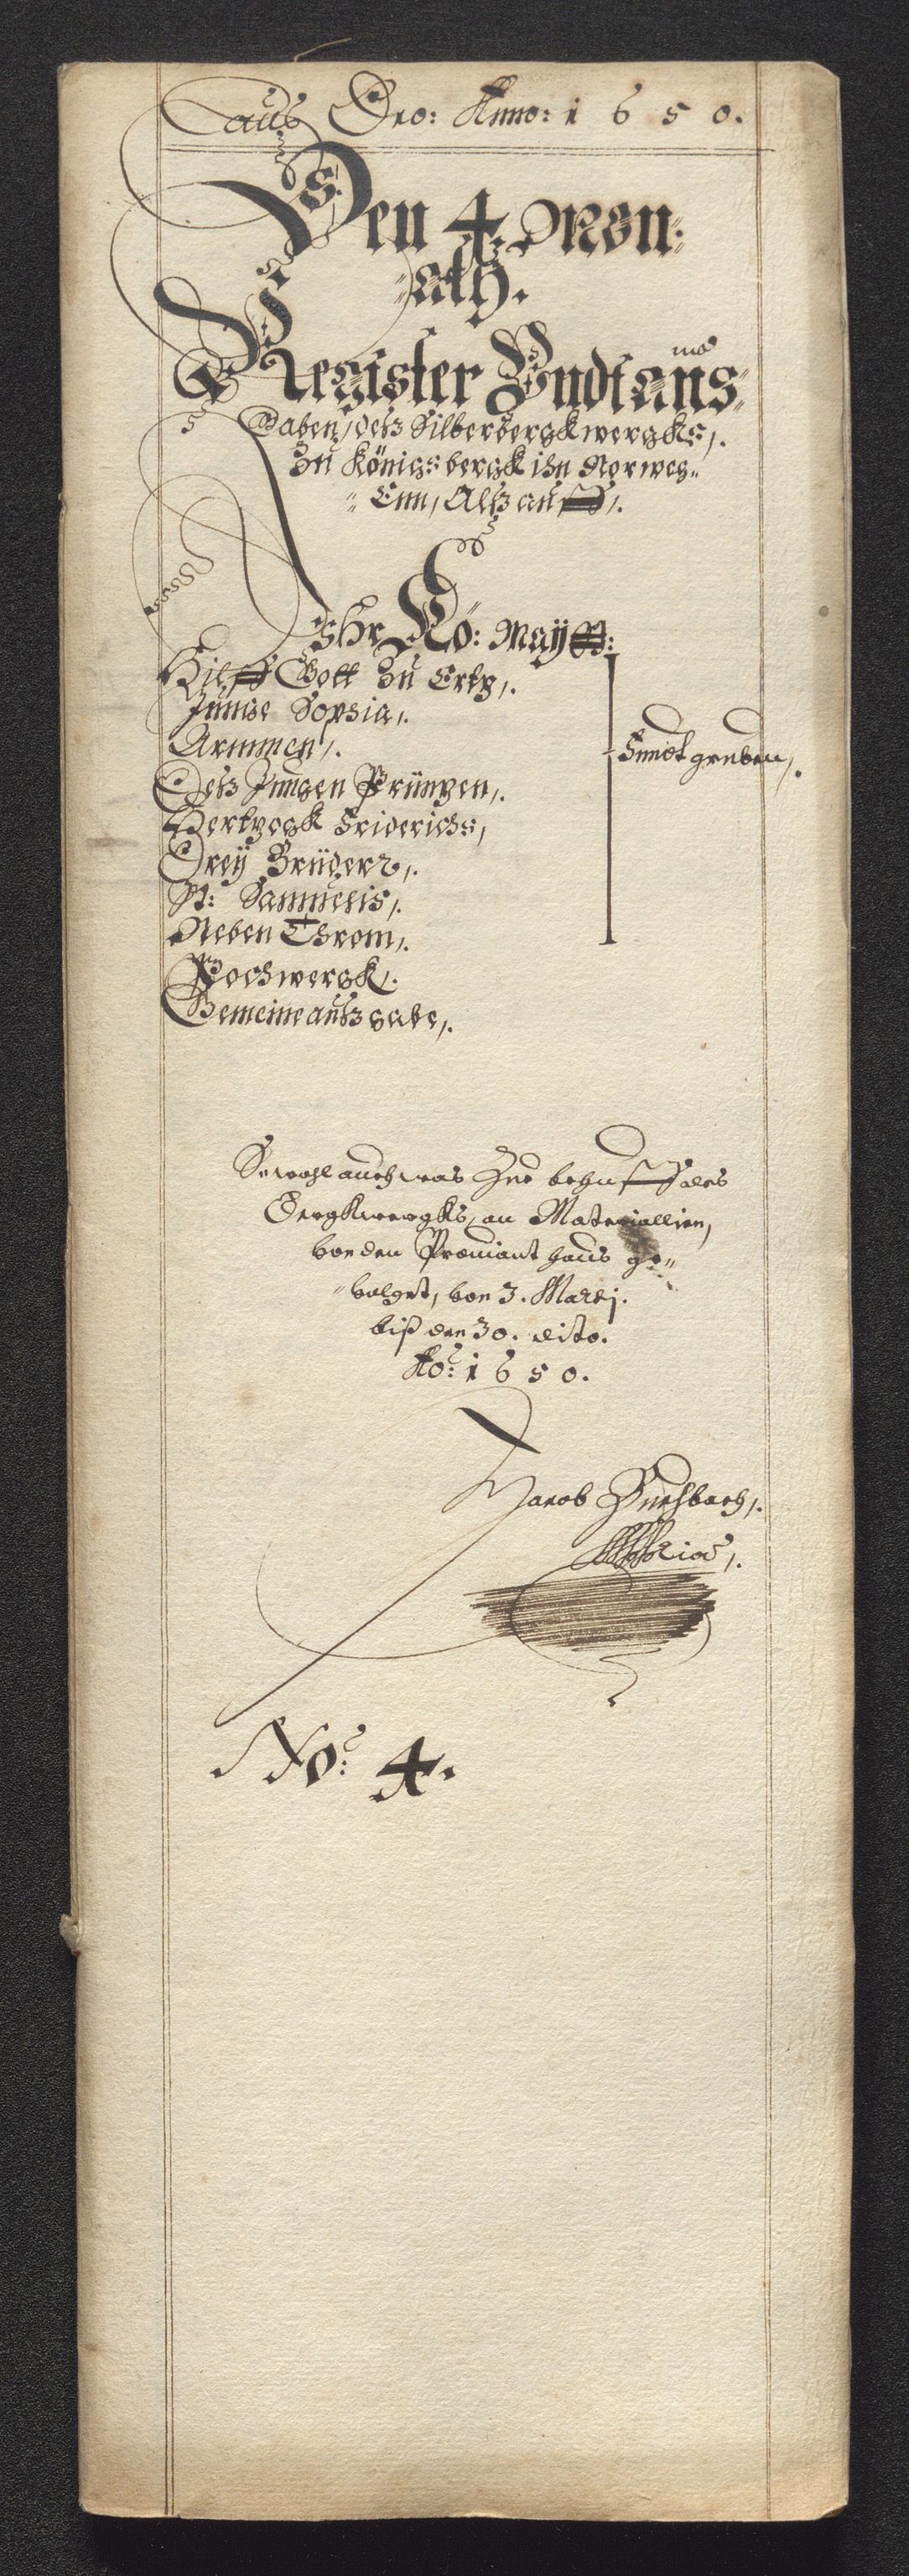 Laus Deo: Anno: 1650.
Den 4. Mon:
ath.
Register Vndt aus
Gaben, deß Silberbergkwergks,.
Zu Königsbergk ihn Norweg
Enn, Alß auff,.
Ihr Kö: May
Hilff Gott Zu Ertz,.
Junge Sopsia,.
Armmen,.
Deß Jungen Printzen,.
Hertzogk Friderichs,
Drey Brüder,.
St: Samuelis,.
Neben Throm,.
Fundtgruben,.
Pochwergk,.
Gemeine außgabe,.
Sowohl auch was Zue behuff des
Bergkwergks, an Materiallien,
von den Proviant hauß ge
volget, von 3. Martj.
biß den 30. dito.
Ao: 1650.
Jacob
No: 4.